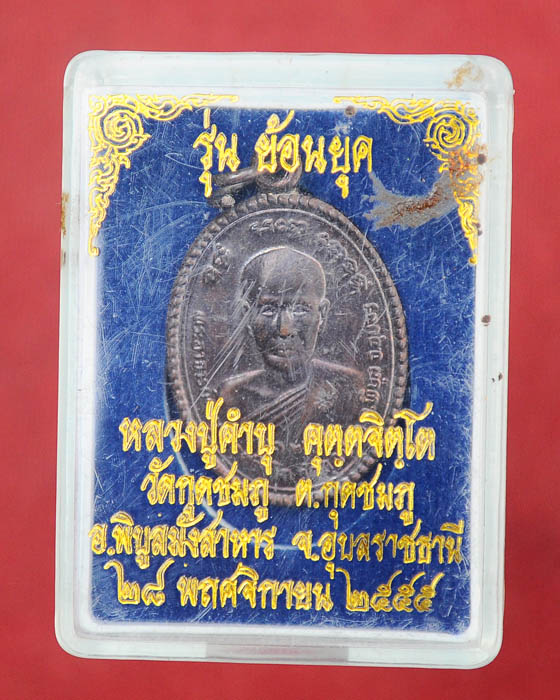 รุ่น ย้อนยุค
หลวงปู่คำบุ คุตฺตจิตฺโต
วัดกุดชมภู ต.กุดชมภู
อ.พิบูลมังสาหาร จ.อุบลราชธานี
๒๘ พฤศจิกายน ๒๕๕๕